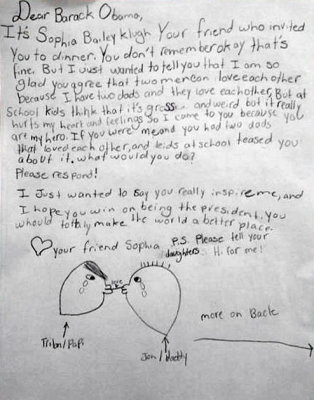 Dear Barack Obama,
It's Sophia Bailey klugh Your friend who invited
You to dinner. You don't remember okay that's
fine. But I Just wanted to tell you that I am so
glad you agree that two men can love each other
because I have two dads and they love each other. But at
School kids think that it's gross and weird but it really
hurts my heart and feelings. So I come to you because you
are my hero. If you were me and you had two dads
that loved each other, and kids at school teased you
about it, what would you do?
Please respond!
I Just wanted to say you really inspire me, and
I hope you win on being the president. You
whould totally make the world a better place.
your friend Sophia
P.S. Please tell your
daughters Hi for me!
love
more on Back
/Papi
Jon/daddy